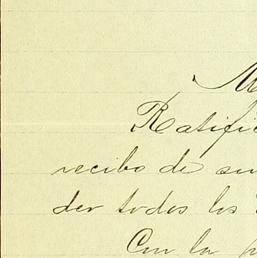 M
Ratific
recibo de su
der todos los
Con la p